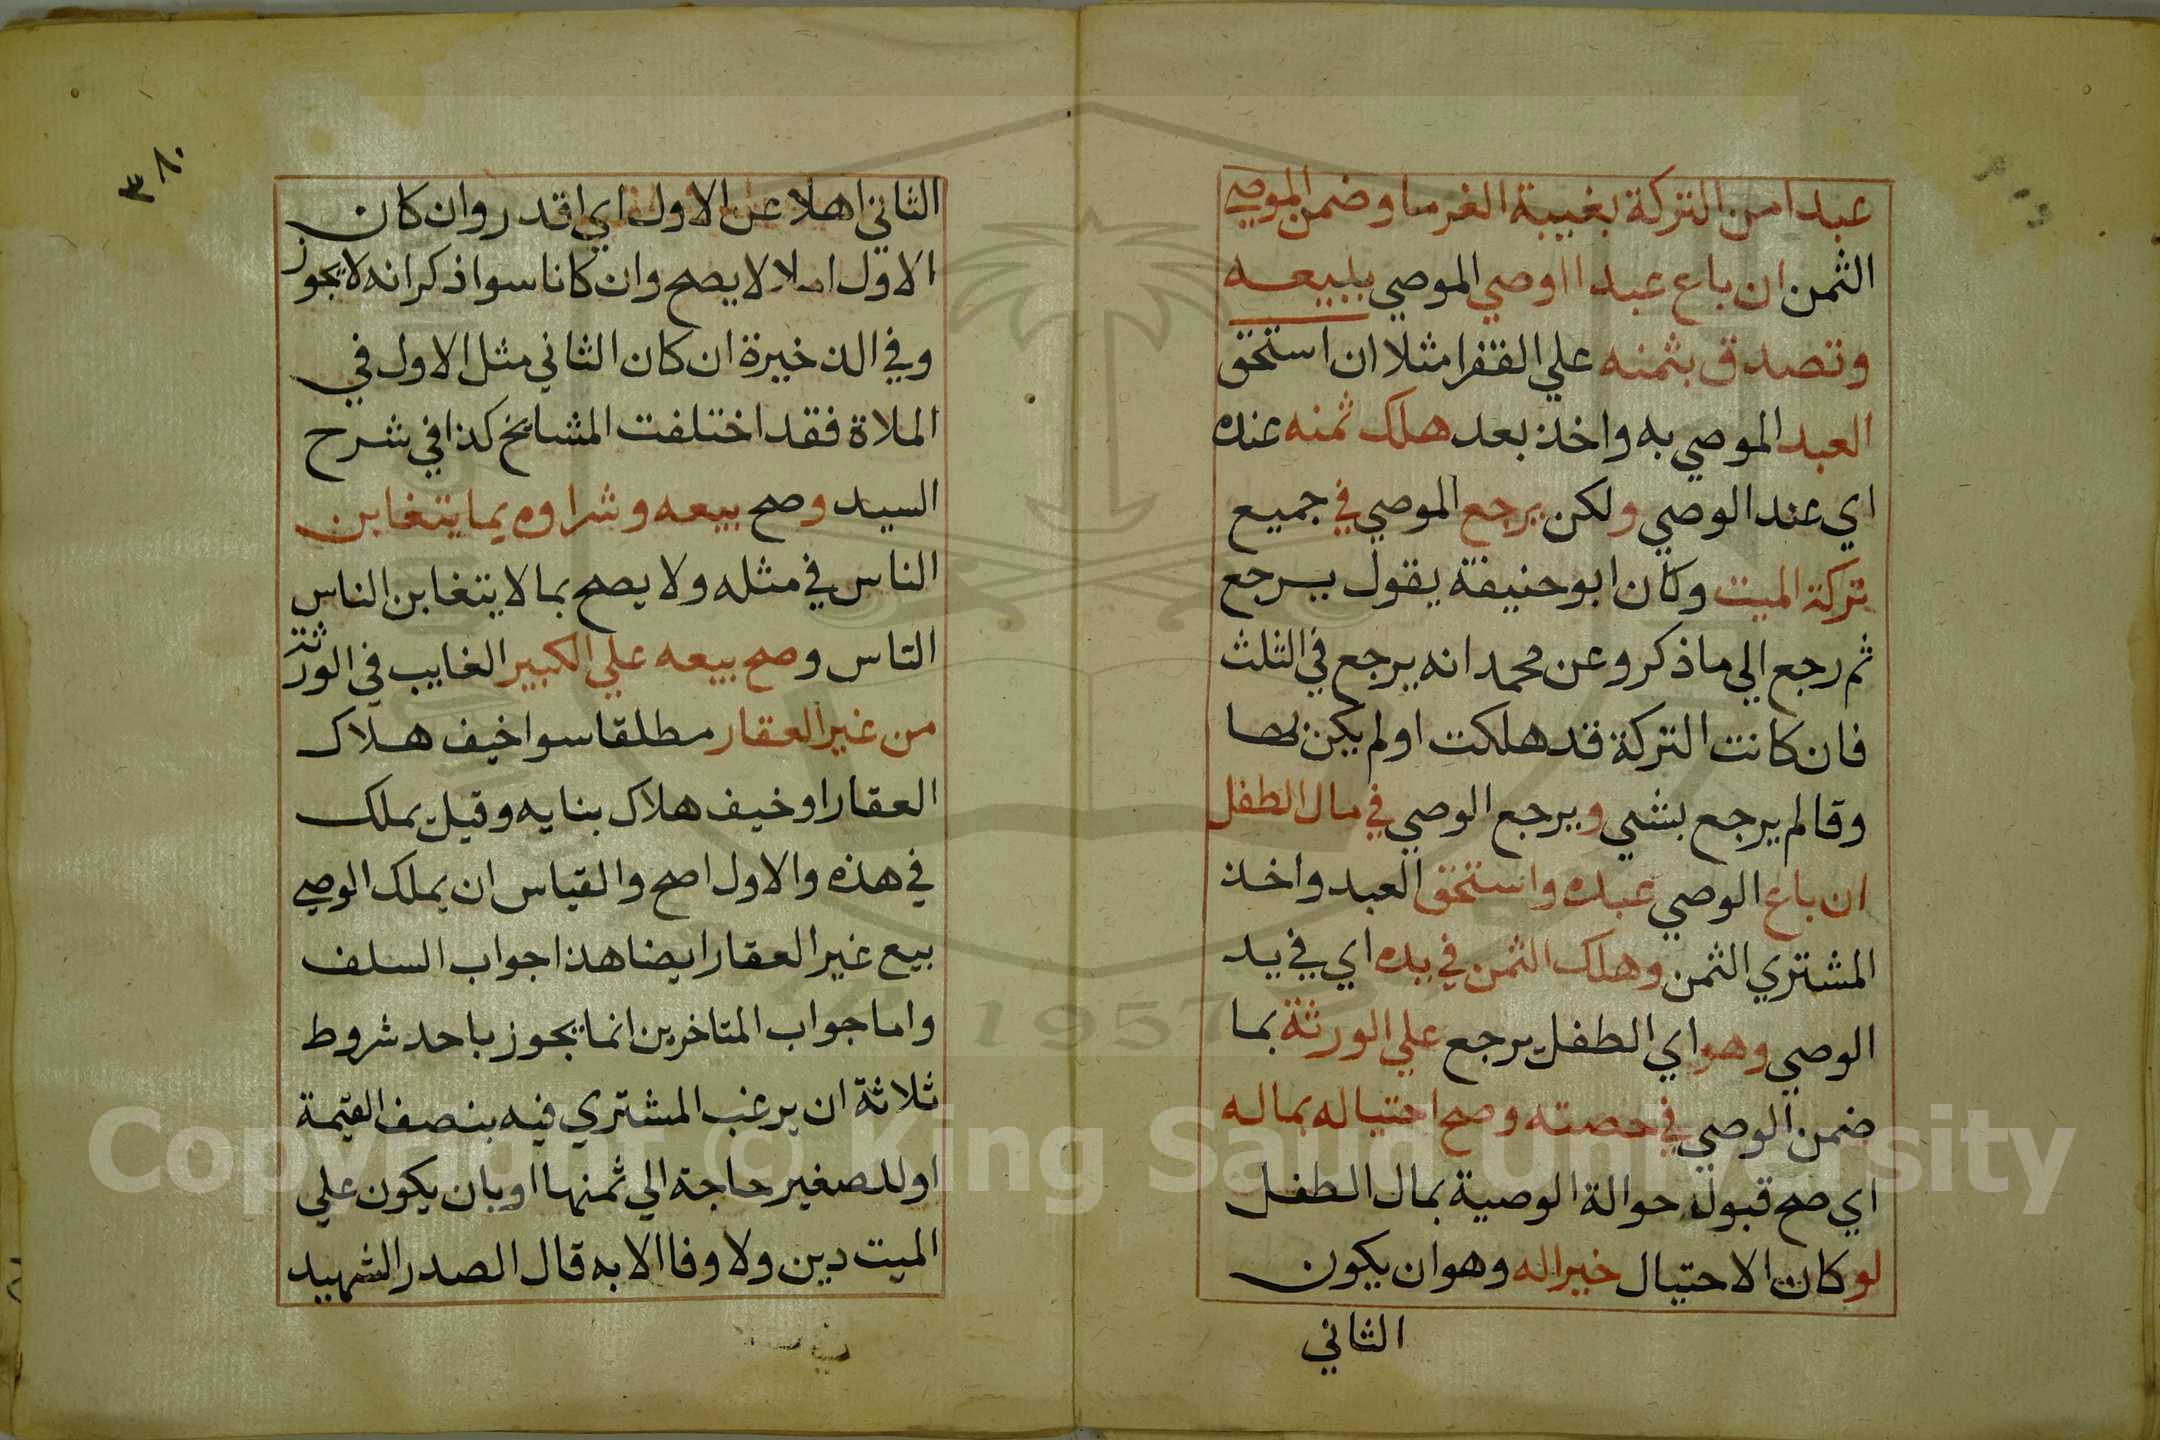 عبدا من التركة بغيبة الغرما وضمن الموصي
الثمن ان باع عبدا اوصي الموصي ببيعه
وتصدق بثمنه علي الفقرا مثلا ان استحق
العبد الموصي به واخذ بعد هلك ثمنه عنده
اي عند الوصي ولكن يرجع الموصي في جميع
تركة الميت وكان ابو حنيفة يقول يرجع
ثم رجع الي ما ذكر وعن محمد انه يرجع في الثلث
فان كانت التركة قد هلكت او لم يكن لها
وقا لم يرجع بشي ويرجع الوصي في مال الطفل
ان باع الوصي عبده واستحق العبد واخذ
المشتري الثمن وهلك الثمن في يده اي في يد
الوصي وهو اي الطفل يرجع علي الورثة بما
ضمن الوصي في حصته وصح احتياله بماله
اي صح قبول حوالة الوصية بمال الطفل
لو كان الاحتيال خيرا له وهو ان يكون
الثاني
٣٨٠
الثاني اهلا عن الاول اي اقدر وان كان
الاول املا لا يصح وان كانا سوا ذكر انه لا يجوز
وفي الذخيرة ان كان الثاني مثل الاول في
الملاة فقد اختلفت المشايخ كذا في شرح
السيد وصح بيعه وشراوه بما يتغابن
الناس في مثله ولا يصح بما لا يتغابن الناس
الناس وصح بيعه علي الكبير الغايب في الورثة
من غير العقار مطلقا سوا خيف هلاك
العقار او خيف هلاك بنايه وقيل يملك
في هذه والاول اصح والقياس ان يملك الوصي
بيع غير العقار ايضا هذا جواب السلف
واما جواب المتاخرين انما يجوز باحد شروط
ثلاثة ان يرغب المشتري فيه بنصف القيمة
او للصغير حاجة الي ثمنها او بان يكون علي
الميت دين ولا وفا الا به قال الصدر الشهيد
1957
Copyright © King Saud University